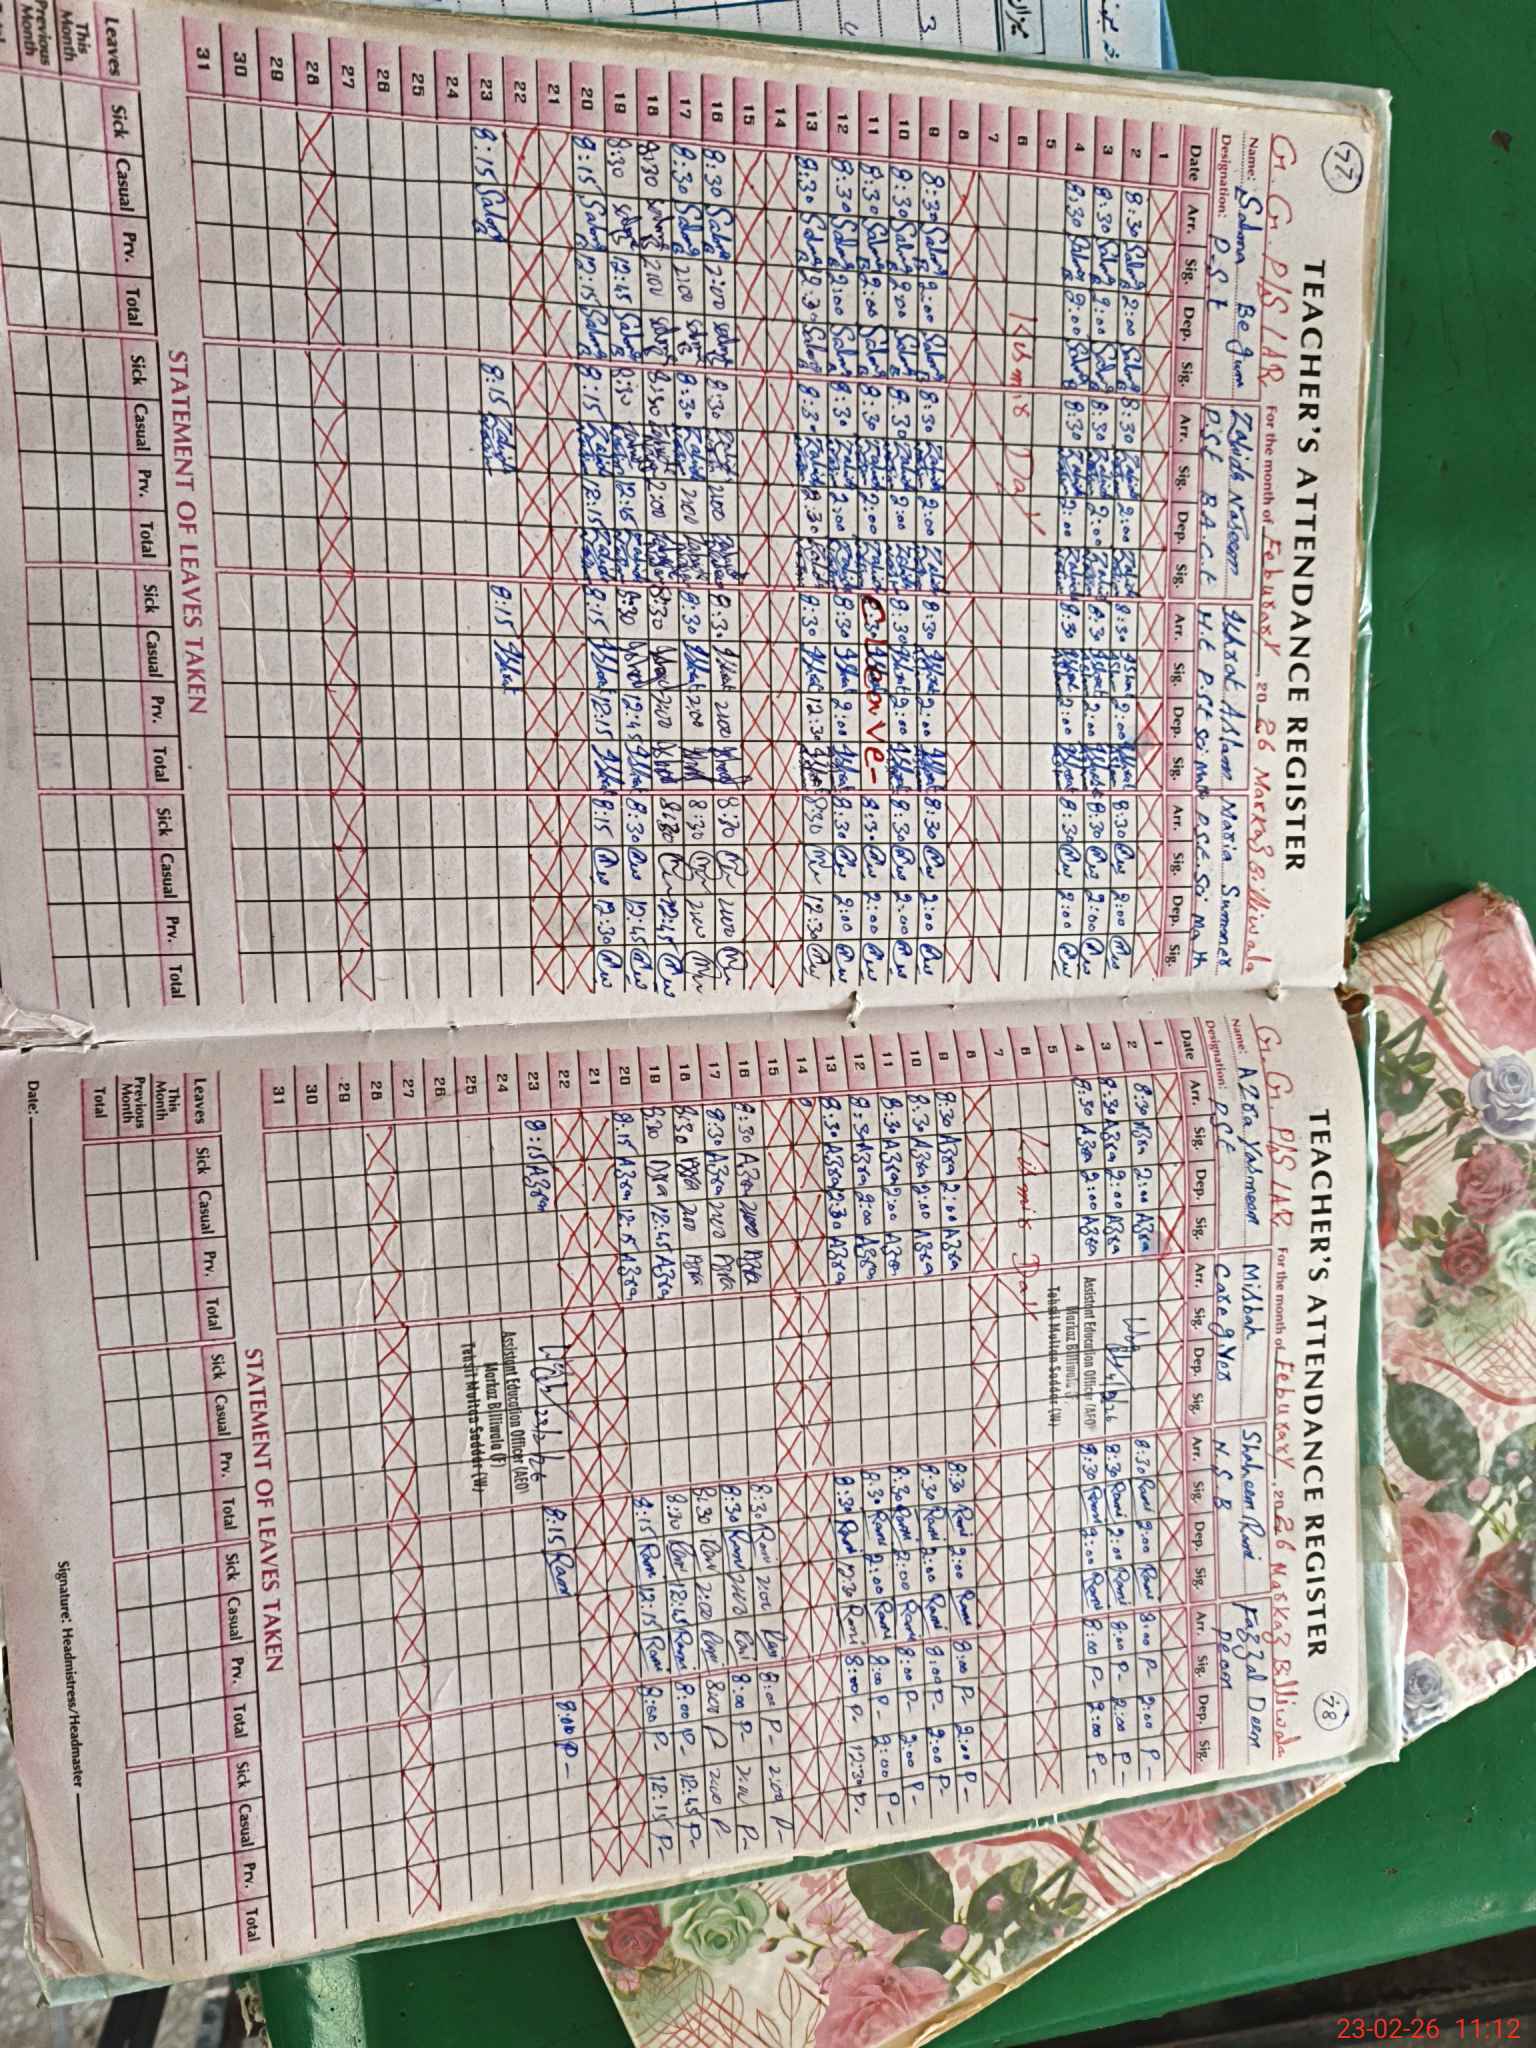 77
TEACHER'S ATTENDANCE REGISTER
G. G. P/S 1AR For the month of Feburary, 2026 Markaz Billiwala
Name: Salma Begum Zahida Naseem Ishrat Aslam Maria Summer
Designation: P.S.t P.S.t B.A.C.t H.t P.St Sci Math P.S.t. Sci Math
Date Arr. Sig. Dep. Sig. Arr. Sig. Dep. Sig. Arr. Sig. Dep. Sig. Arr. Sig. Dep. Sig.
1
2 8:30 Salma B 2:00 Salma B 8:30 Zahida 2:00 Zahida 8:30 Ishrat 2:00 Ishrat 8:30 2:00
3 8:30 Salma B 2:00 Salma B 8:30 Zahida 2:00 Zahida 8:30 Ishrat 2:00 Ishrat 8:30 2:00
4 8:30 Salma B 2:00 Salma B 8:30 Zahida 2:00 Zahida 8:30 Ishrat 2:00 Ishrat 8:30 2:00
5
6 Kshmir Day
7
8
9 8:30 Salma B 2:00 Salma B 8:30 Zahida 2:00 Zahida 8:30 Ishrat 2:00 Ishrat 8:30 2:00
10 8:30 Salma B 2:00 Salma B 8:30 Zahida 2:00 Zahida 8:30 Ishrat 2:00 Ishrat 8:30 2:00
11 8:30 Salma B 2:00 Salma B 8:30 Zahida 2:00 Zahida 8:30 C leave- 8:30 2:00
12 8:30 Salma B 2:00 Salma B 8:30 Zahida 2:00 Zahida 8:30 Ishrat 2:00 Ishrat 8:30 2:00
13 8:30 Salma B 12:30 Salma B 8:30 Zahida 12:30 Zahida 8:30 Ishrat 12:30 Ishrat 8:30 12:30
14
15
16 8:30 Salma B 2:00 Salma B 8:30 Zahida 2:00 Zahida 8:30 Ishrat 2:00 Ishrat 8:30 2:00
17 8:30 Salma B 2:00 Salma B 8:30 Zahida 2:00 Zahida 8:30 Ishrat 2:00 Ishrat 8:30 2:00
18 8:30 Salma B 2:00 Salma B 8:30 Zahida 2:00 Zahida 8:30 Ishrat 2:00 Ishrat 8:30 12:45
19 8:30 Salma B 12:45 Salma B 8:30 Zahida 12:45 Zahida 8:30 Ishrat 12:45 Ishrat 8:30 12:45
20 8:15 Salma B 12:15 Salma B 8:15 Zahida 12:15 Zahida 8:15 Ishrat 12:15 Ishrat 8:15 12:30
21
22
23 8:15 Salma B 8:15 Zahida 8:15 Ishrat
24
25
26
27
28
29
30
31
STATEMENT OF LEAVES TAKEN
Leaves Sick Casual Prv. Total Sick Casual Prv. Total Sick Casual Prv. Total Sick Casual Prv. Total
This Month
Previous Month
78
TEACHER'S ATTENDANCE REGISTER
G. G. P/S 1AR For the month of Feburary, 2026 Markaz Billiwala
Name: Azra Yasmeen Misbah Shaheen Rani Fazal Deen
Designation: P.S.t Care giver N.S.B Peon
Date Arr. Sig. Dep. Sig. Arr. Sig. Dep. Sig. Arr. Sig. Dep. Sig. Arr. Sig. Dep. Sig.
1
2 8:30 Azra 2:00 Azra 8:30 Rani 2:00 Rani 8:00 P- 2:00 P-
3 8:30 Azra 2:00 Azra 4/2/26 8:30 Rani 2:00 Rani 8:00 P- 2:00 P-
4 8:30 Azra 2:00 Azra 8:30 Rani 2:00 Rani 8:00 P- 2:00 P-
Assistant Education Officer (AEO)
Markaz Billiwala
Tehsil Multan Saddar (W)
5
6 Kshmir Day
7
8
9 8:30 Azra 2:00 Azra 8:30 Rani 2:00 Rani 8:00 P- 2:00 P-
10 8:30 Azra 2:00 Azra 8:30 Rani 2:00 Rani 8:00 P- 2:00 P-
11 8:30 Azra 2:00 Azra 8:30 Rani 2:00 Rani 8:00 P- 2:00 P-
12 8:30 Azra 2:00 Azra 8:30 Rani 2:00 Rani 8:00 P- 2:00 P-
13 8:30 Azra 12:30 Azra 8:30 Rani 12:30 Rani 8:00 P- 12:30 P-
14
15
16 8:30 Azra 2:00 Azra 8:30 Rani 2:00 Rani 8:00 P- 2:00 P-
17 8:30 Azra 2:00 Azra 8:30 Rani 2:00 Rani 8:00 P- 2:00 P-
18 8:30 Azra 2:00 Azra 8:30 Rani 2:00 Rani 8:00 P 2:00 P-
19 8:30 Azra 12:45 Azra 8:30 Rani 12:45 Rani 8:00 P- 12:45 P-
20 8:15 Azra 12:15 Azra 8:15 Rani 12:15 Rani 8:00 P- 12:15 P-
21
22
23 8:15 Azra 23/2/26 8:15 Rani 8:00 P-
Assistant Education Officer (AEO)
Markaz Billiwala (F)
Tehsil Multan Saddar (W)
24
25
26
27
28
29
30
31
STATEMENT OF LEAVES TAKEN
Leaves Sick Casual Prv. Total Sick Casual Prv. Total Sick Casual Prv. Total Sick Casual Prv. Total
This Month
Previous Month
Total
Date: Signature: Headmistress/Headmaster
23-02-26 11:12